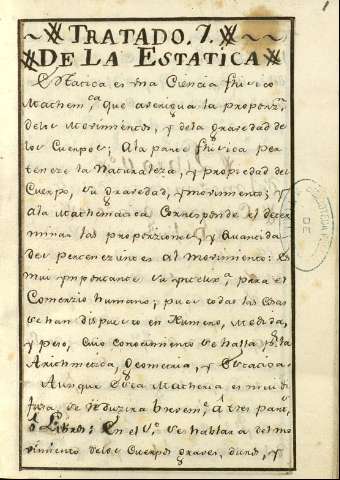 TRATADO. 7.
DE LA ESTATICA
Estatica es una Ciencia fhisico
Mathem.ca que averigua la proporz.n
delos Movimientos, y dela gravedad de
los Cuerpos; Ala parte fhisica per
tenece la Naturaleza, y propiedad del
Cuerpo, su gravedad, y movimiento; y
Ala Mathematica Corresponde el deter
minar las proporziones, y quantida
des pertenezientes al movimiento: Es
mui importante su para el
Comerzio humano; pues todas las Cosas
se han dispuesto en Numero, Medida,
y peso, cuio Conocimiento se halla p.r la
Arithmetica, Geometria, y Estatica.
Aunque Esta Materia es mui di
fusa, se reduzira brevem.te â tres partes,
ô Libros: En el 1.º se hablara del mo
vimiento delos Cuerpos graves, duros, y